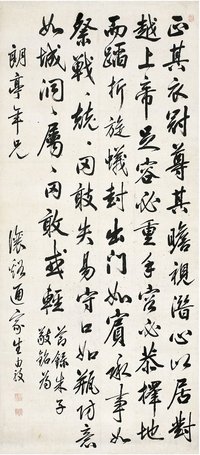 正其衣冠尊其瞻視潛心以居對
越上帝足容必重手容必恭擇地
而蹈折旋蟻封出門如賓承事如
祭戰〻兢〻罔敢失易守口如瓶防意
如城洞〻屬〻罔敢或輕
錄朱子
敬銘為
朗亭年兄
通家生由敦